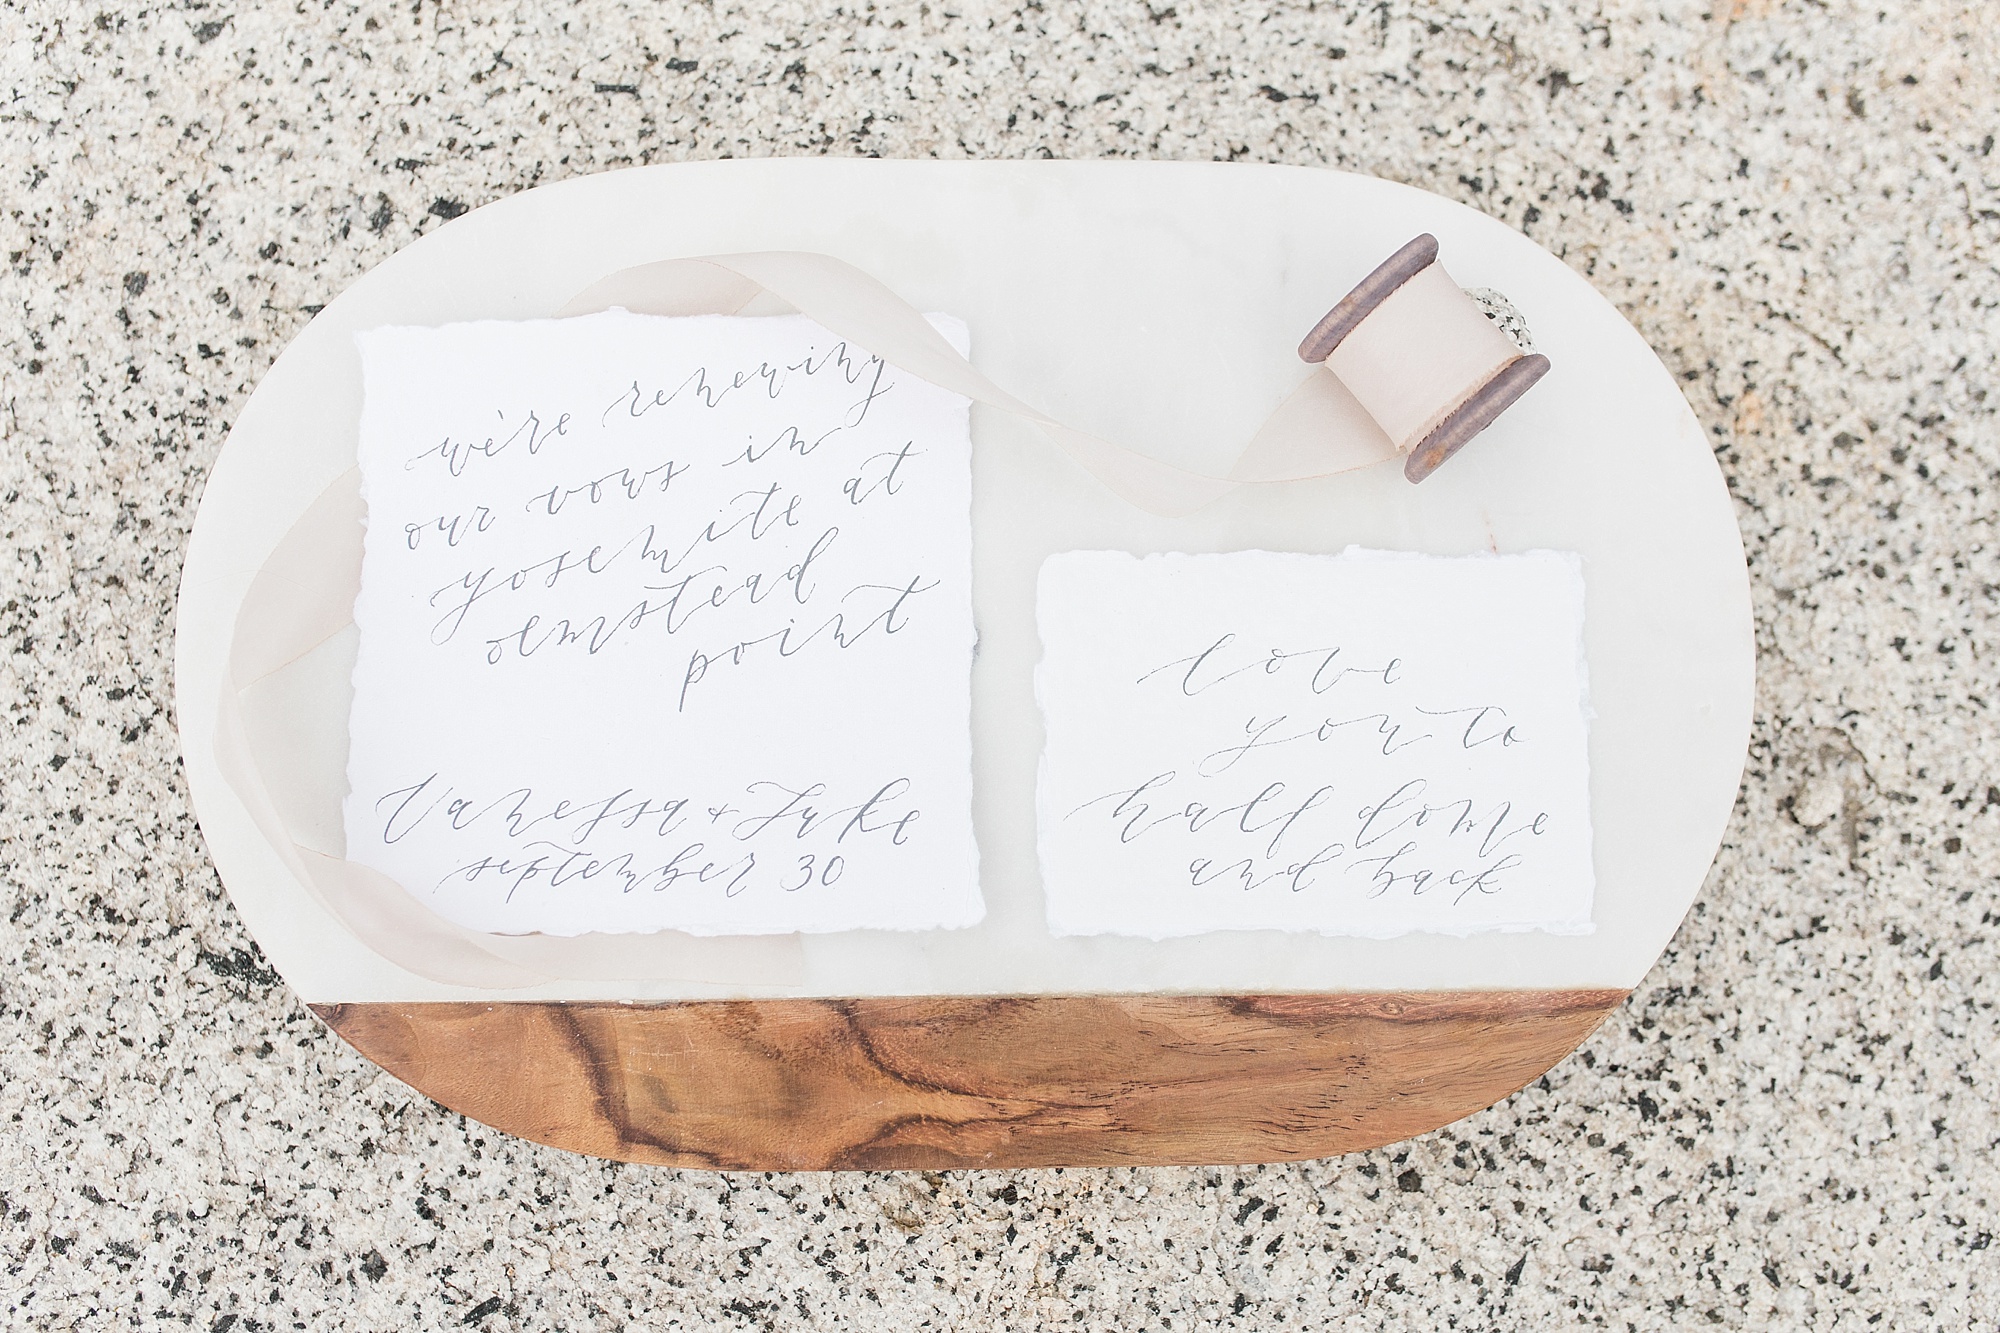 we're renewing
our vows in
yosemite at
olmstead
point
Vanessa + Luke
september 30
love
you to
half dome
and back